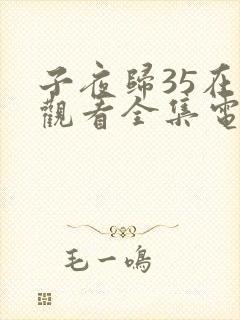 子夜歸35在
觀看全集電
毛一鳴